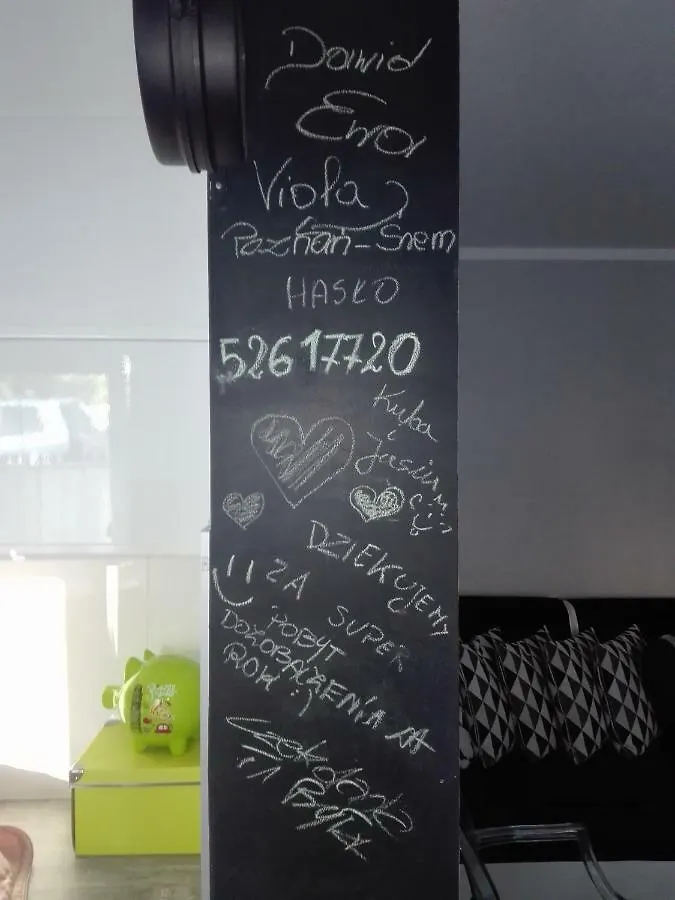 Dawid
Ewa
Viola
Poznań-Śrem
HASŁO
52617720
Kuba
i
DZIĘKUJEMY
ZA SUPER
POBYT
DOZOBACZENIA ZA
ROK :)